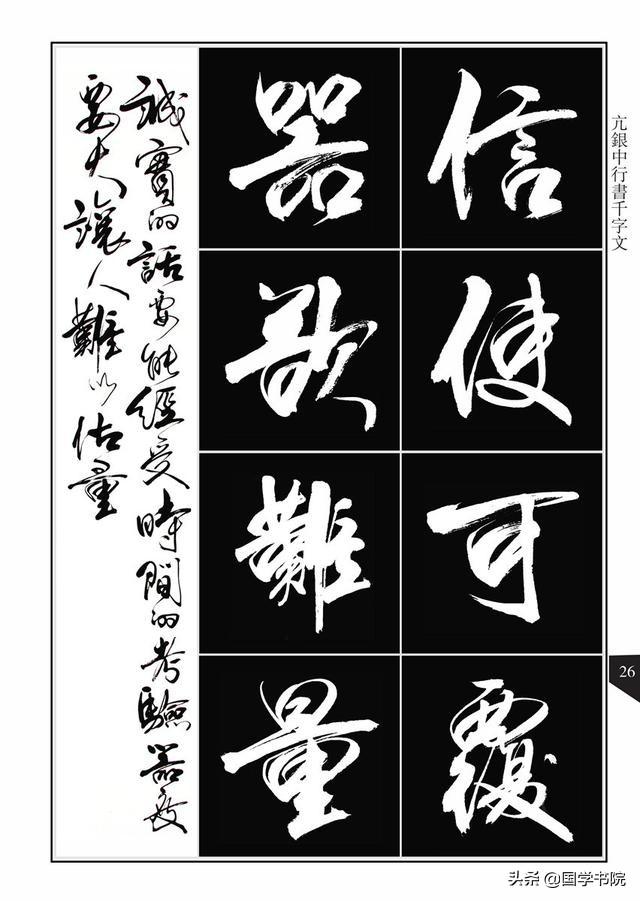 亢銀中行書千字文
信使可覆
器欲難量
誠實的話要能經受時間的考驗器度
要大讓人難以估量
26
头条 @国学书院